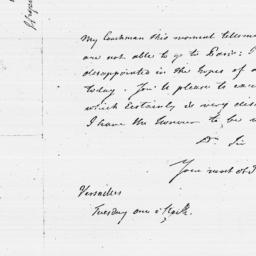 My Coachman this moment tells me
are not able to go to Paris: I
disappointed in the hopes of
today. You'l be pleased to exc
which certainly is very dis
I have the honour to be w
Dr. Sir
Your most ob
Versailles
Tuesday one o'Clock.